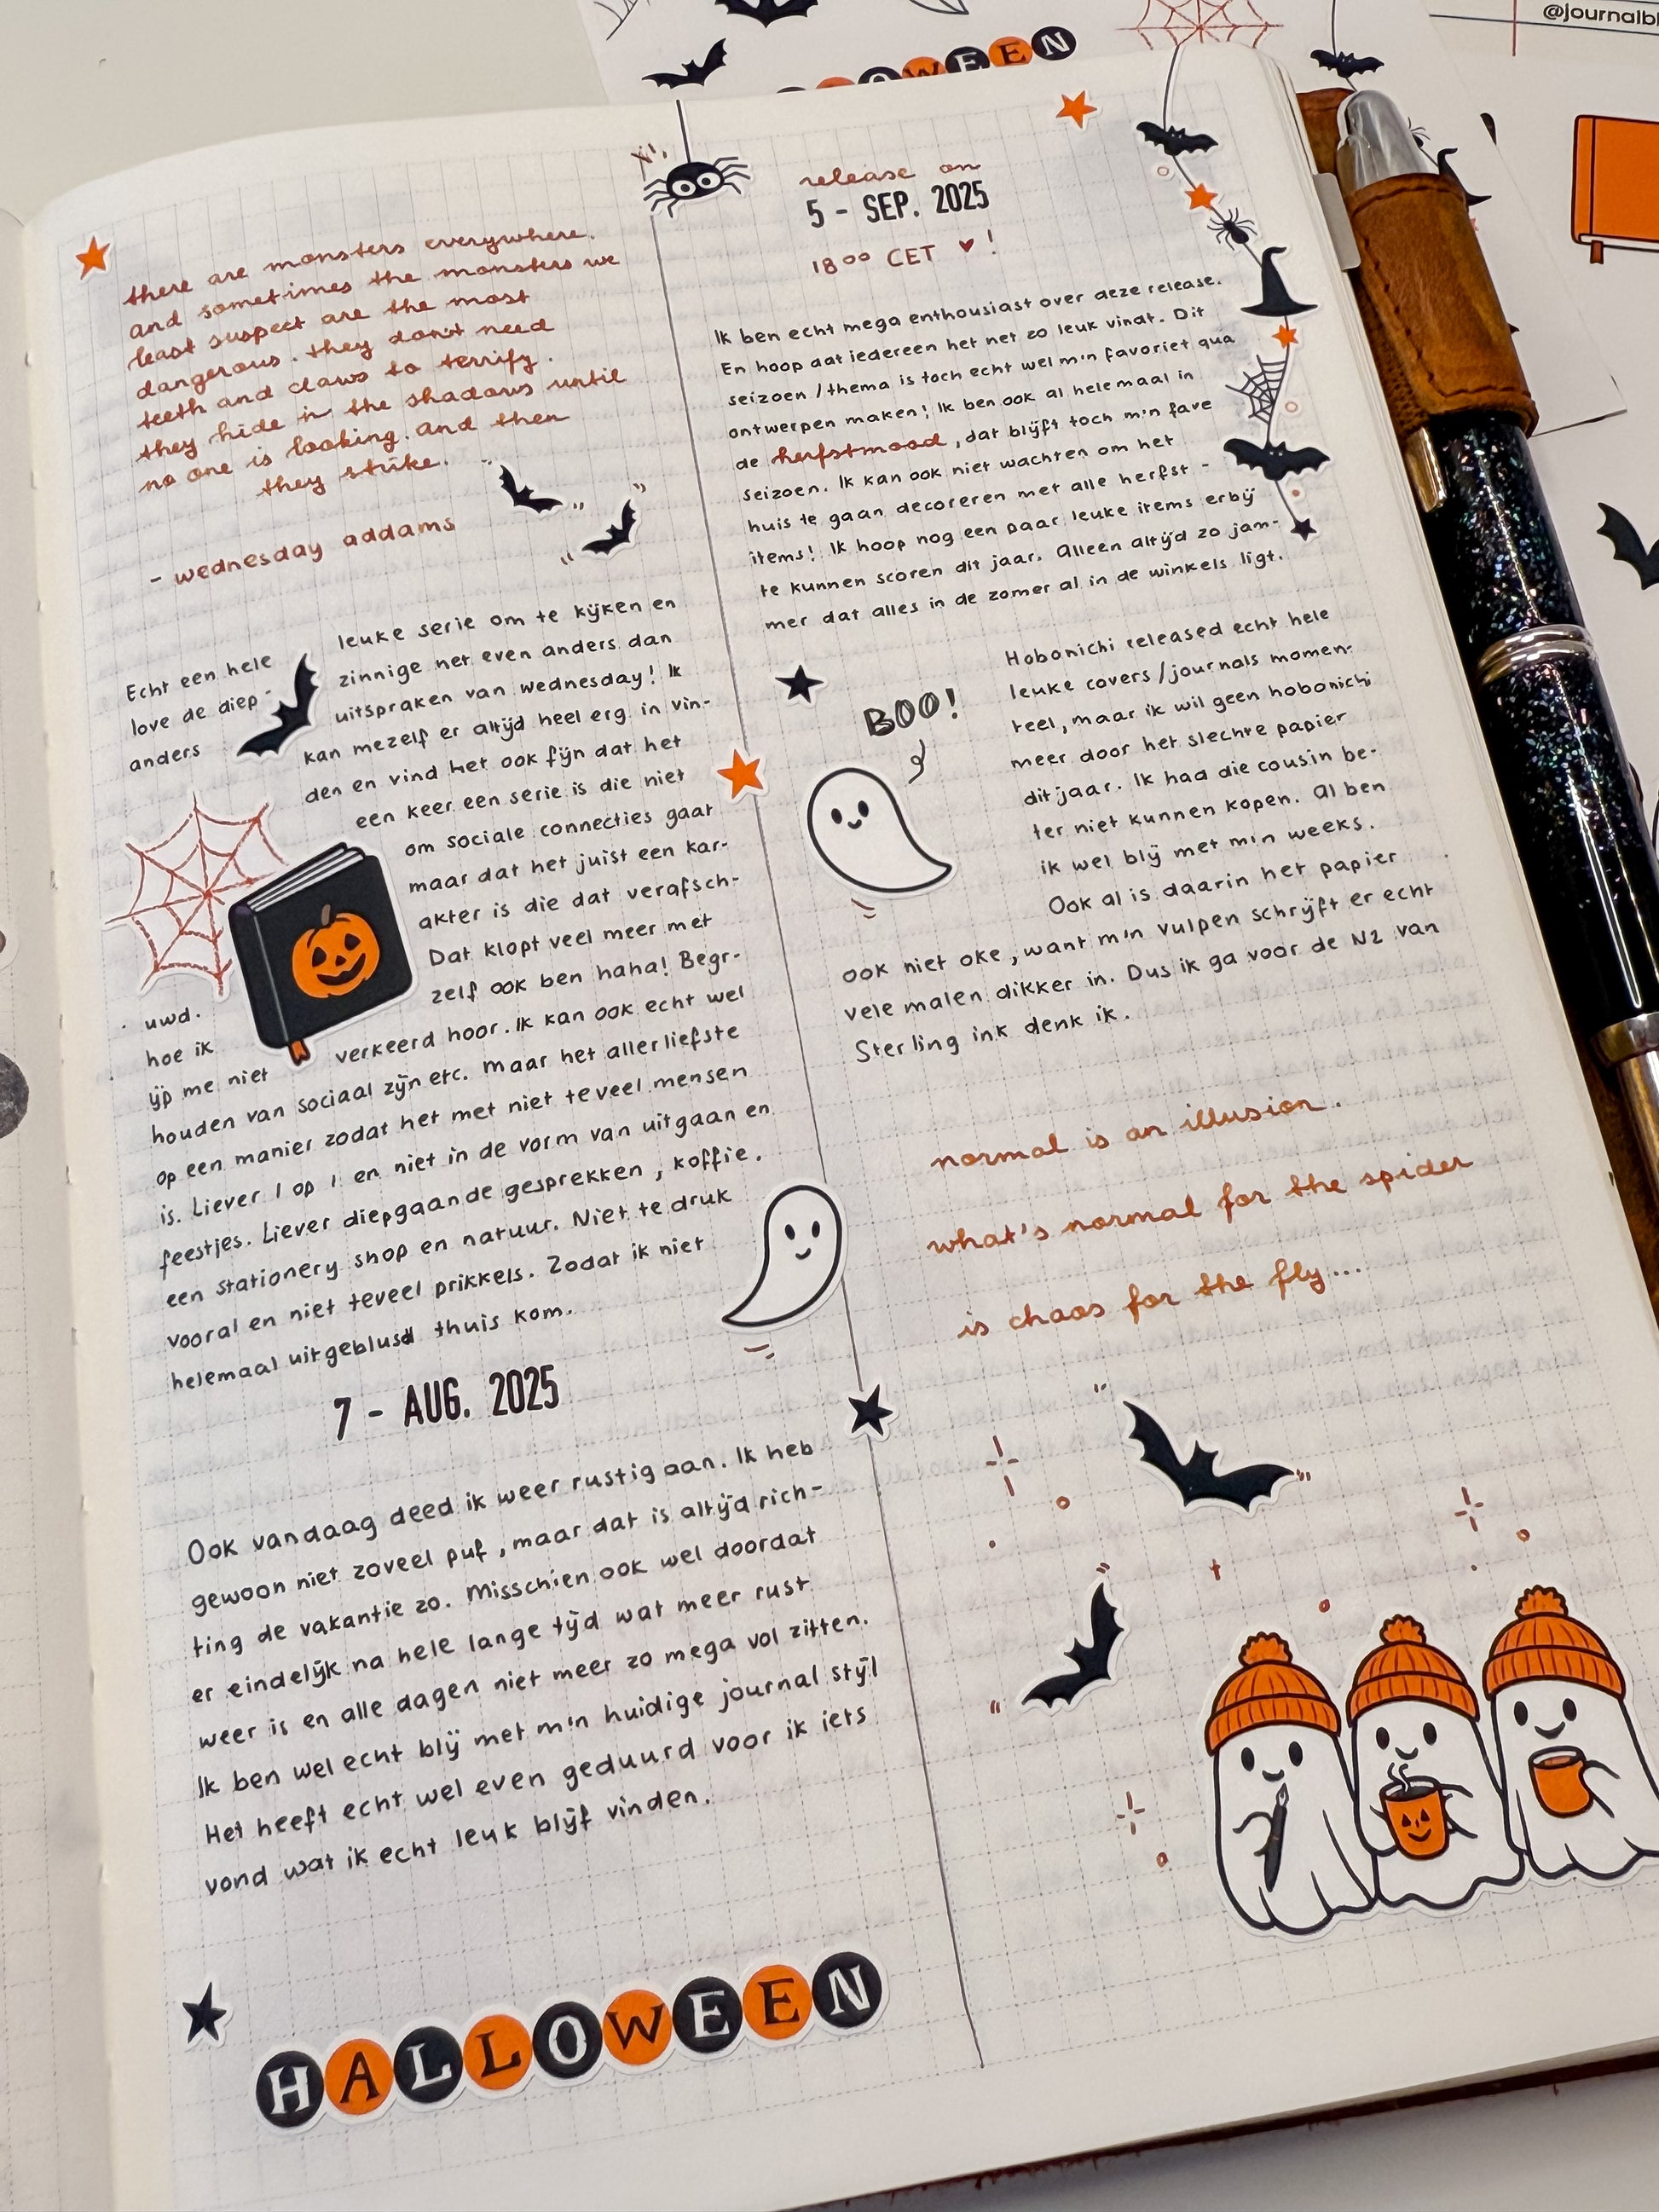 @journalbl
HALLOWEEN
there are monsters everywhere.
and sometimes the monsters we
least suspect are the most
dangerous. they don't need
teeth and claws to terrify.
they hide in the shadows until
no one is looking. and then
they strike.
- wednesday addams
Echt een hele leuke serie om te kijken en
love de diep- zinnige net even anders dan
anders uitspraken van wednesday! Ik
kan mezelf er altijd heel erg in vin-
den en vind het ook fijn dat het
een keer een serie is die niet
om sociale connecties gaat
maar dat het juist een kar-
akter is die dat verafsch-
uwd. Dat klopt veel meer met
hoe ik zelf ook ben haha! Begr-
ijp me niet verkeerd hoor. Ik kan ook echt wel
houden van sociaal zijn etc. maar het allerliefste
op een manier zodat het met niet teveel mensen
is. Liever 1 op 1 en niet in de vorm van uitgaan en
feestjes. Liever diepgaande gesprekken, koffie,
een stationery shop en natuur. Niet te druk
vooral en niet teveel prikkels. Zodat ik niet
helemaal uitgeblusd thuis kom.
7 - AUG. 2025
Ook vandaag deed ik weer rustig aan. Ik heb
gewoon niet zoveel puf, maar dat is altijd rich-
ting de vakantie zo. Misschien ook wel doordat
er eindelijk na hele lange tijd wat meer rust
weer is en alle dagen niet meer zo mega vol zitten.
Ik ben wel echt blij met m'n huidige journal stijl
Het heeft echt wel even geduurd voor ik iets
vond wat ik echt leuk blijf vinden.
HALLOWEEN
release on
5 - SEP. 2025
18⁰⁰ CET ♥!
Ik ben echt mega enthousiast over deze release.
En hoop dat iedereen het net zo leuk vindt. Dit
seizoen/thema is toch echt wel m'n favoriet qua
ontwerpen maken! Ik ben ook al helemaal in
de herfstmood, dat blijft toch m'n fave
seizoen. Ik kan ook niet wachten om het
huis te gaan decoreren met alle herfst -
items! Ik hoop nog een paar leuke items erbij
te kunnen scoren dit jaar. Alleen altijd zo jam-
mer dat alles in de zomer al in de winkels ligt.
BOO!
Hobonichi released echt hele
leuke covers/journals momen-
teel, maar ik wil geen hobonichi
meer door het slechte papier
dit jaar. Ik had die cousin be-
ter niet kunnen kopen. Al ben
ik wel blij met m'n weeks.
Ook al is daarin het papier
ook niet oke, want m'n vulpen schrijft er echt
vele malen dikker in. Dus ik ga voor de N2 van
Sterling ink denk ik.
normal is an illusion.
what's normal for the spider
is chaos for the fly...